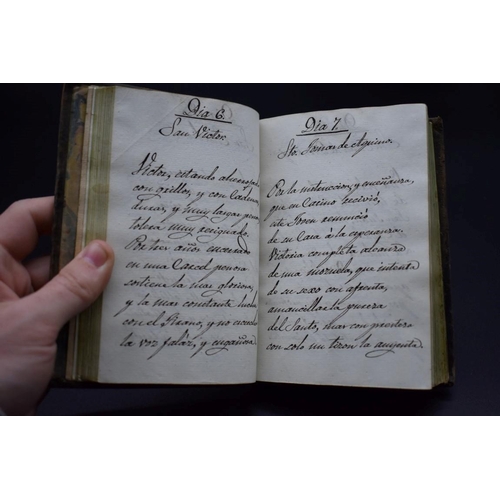 Dia 6.
San Victor.
Victor, estando
con grillos, y con Cadenas
duras, y muy largas penas
tolera muy resignado.
Por tres años encerrado
en una Carcel penosa
sostiene la mas gloriosa,
y la mas constante lucha
con el Tirano, y no escucha
la voz falàz, y engañosa
Dia 7.
Sto. Tomas de Aquino.
Por la instruccion, y enseñanza,
que en Casino recivió,
este Joven renunció
de su Casa à la esperanza.
Victoria completa alcanza
de una mozuela, que intenta
de su sexo con afrenta,
amancillar la pureza
del Santo, mas con presteza
con solo un tizon la auyenta